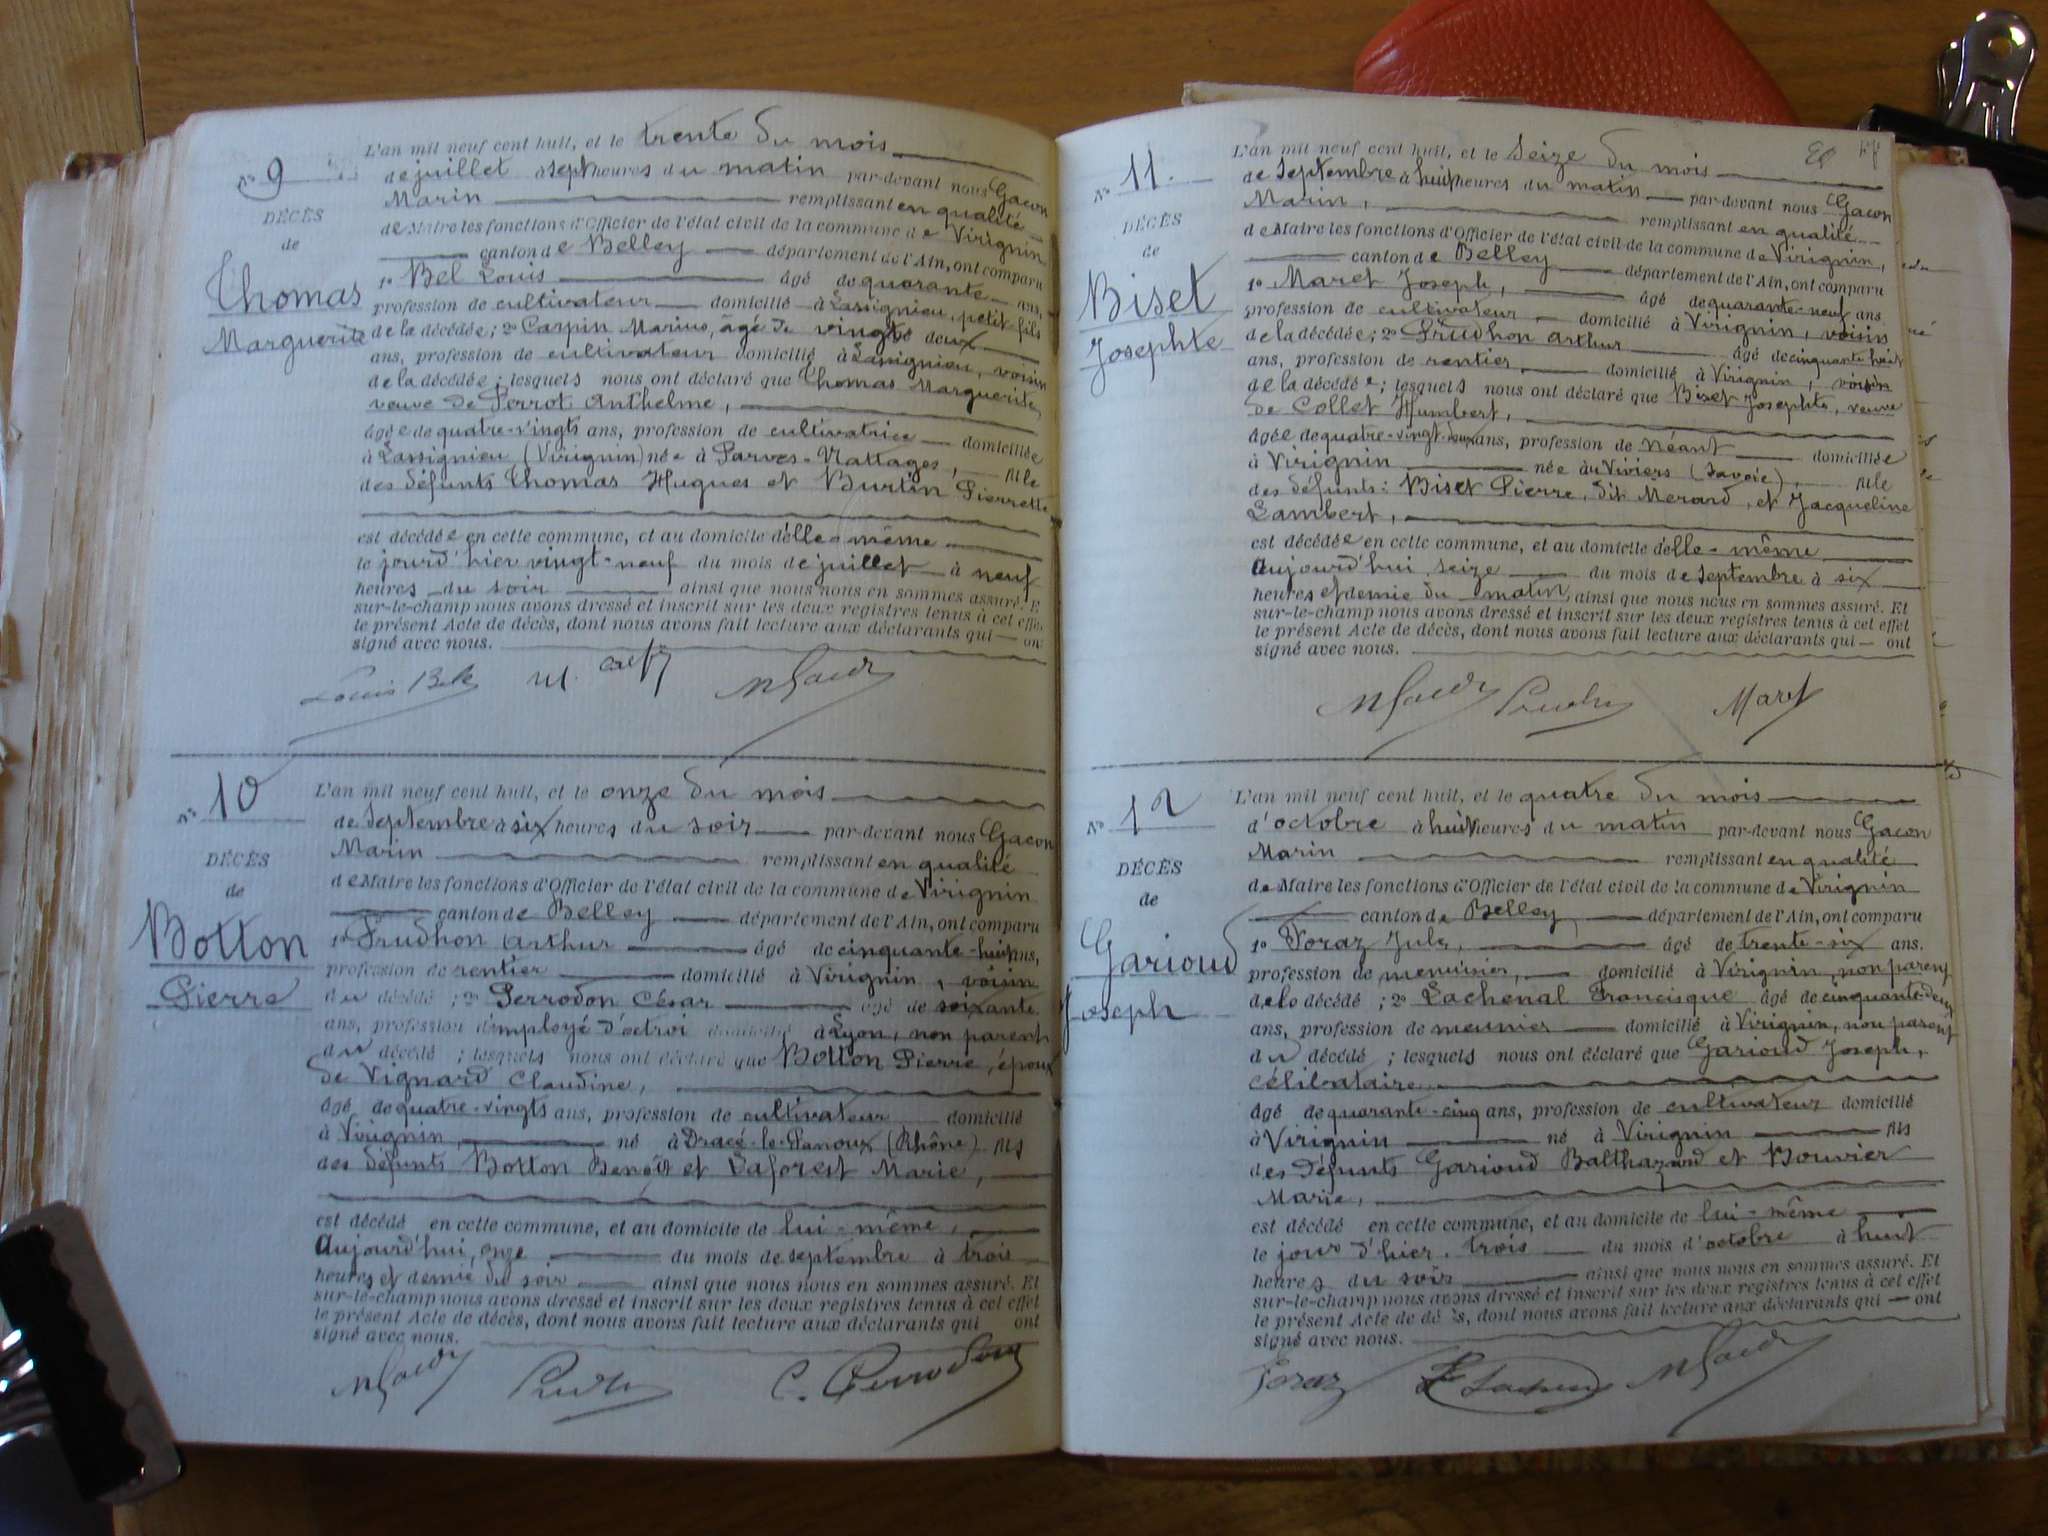 N° 9
DÉCÈS
de
Thomas
Marguerite
L'an mil neuf cent huit, et le trente du mois
de juillet à sept heures du matin par-devant nous Gacon
Marin remplissant en qualité
de Maire les fonctions d'Officier de l'état civil de la commune de Virignin
canton de Belley département de l'Ain, ont comparu
1° Bel Louis âgé de quarante ans,
profession de cultivateur domicilié à Lassignieu, petit fils
de la décédée; 2° Carpin Marius, âgé de vingt deux
ans, profession de cultivateur domicilié à Lassignieu, voisin
de la décédée; lesquels nous ont déclaré que Thomas Marguerite,
veuve de Perrot Anthelme,
âgée de quatre-vingts ans, profession de cultivatrice domiciliée
à Lassignieu (Virignin) née à Parves-Nattages, fille
des défunts Thomas Hugues et Burtin Pierrette
est décédée en cette commune, et au domicile d'elle-même
le jourd'hier vingt-neuf du mois de juillet à neuf
heures du soir ainsi que nous nous en sommes assuré. E
sur-le-champ nous avons dressé et inscrit sur les deux registres tenus à cet effe
le présent Acte de décès, dont nous avons fait lecture aux déclarants qui ont
signé avec nous.
Louis Bel M. MGacon
N° 10
DÉCÈS
de
Botton
Pierre
L'an mil neuf cent huit, et le onze du mois
de Septembre à six heures du soir par-devant nous Gacon
Marin remplissant en qualité
de Maire les fonctions d'Officier de l'état civil de la commune de Virignin
canton de Belley département de l'Ain, ont comparu
1° Prudhon Arthur âgé de cinquante-huit ans,
profession de rentier domicilié à Virignin, voisin
du décédé; 2° Perrodon César âgé de soixante
ans, profession d'employé d'octroi domicilié à Lyon, non parent
du décédé; lesquels nous ont déclaré que Botton Pierre, époux
de Vignard Claudine,
âgé de quatre-vingts ans, profession de cultivateur domicilié
à Virignin, né à Dracé-le-Panoux (Rhône) fils
des défunts Botton Benoît et Laforest Marie,
est décédé en cette commune, et au domicile de lui-même,
Aujourd'hui, onze du mois de septembre à trois
heures et demie du soir ainsi que nous nous en sommes assuré. Et
sur-le-champ nous avons dressé et inscrit sur les deux registres tenus à cet effet
le présent Acte de décès, dont nous avons fait lecture aux déclarants qui ont
signé avec nous.
MGacon Prudhon C. Perrodon
N° 11.
DÉCÈS
de
Biset
Josephte
L'an mil neuf cent huit, et le Seize du mois
de Septembre à huit heures du matin par-devant nous Gacon
Marin, remplissant en qualité
de Maire les fonctions d'Officier de l'état civil de la commune de Virignin,
canton de Belley département de l'Ain, ont comparu
1° Maret Joseph, âgé de quarante-neuf ans
profession de cultivateur, domicilié à Virignin, voisin
de la décédée; 2° Prudhon Arthur âgé de cinquante huit
ans, profession de rentier, domicilié à Virignin, voisin
de la décédée; lesquels nous ont déclaré que Biset Josephte, veuve
de Collet Humbert,
âgée de quatre-vingt-deux ans, profession de Néant domiciliée
à Virignin née au Viviers (Savoie), fille
des défunts: Biset Pierre, dit Merard, et Jacqueline
Lambert,
est décédée en cette commune, et au domicile d'elle-même
Aujourd'hui, seize du mois de Septembre à six
heures et demie du matin, ainsi que nous nous en sommes assuré. Et
sur-le-champ nous avons dressé et inscrit sur les deux registres tenus à cet effet
le présent Acte de décès, dont nous avons fait lecture aux déclarants qui ont
signé avec nous.
MGacon Prudhon Maret
N° 12
DÉCÈS
de
Garioud
Joseph
L'an mil neuf cent huit, et le quatre du mois
d'octobre à huit heures du matin par-devant nous Gacon
Marin remplissant en qualité
de Maire les fonctions d'Officier de l'état civil de la commune de Virignin
canton de Belley département de l'Ain, ont comparu
1° Foraz Jules, âgé de trente-six ans.
profession de menuisier, domicilié à Virignin, non parent
de lo décédé; 2° Lachenal Francisque âgé de cinquante-deux
ans, profession de meunier domicilié à Virignin, non parent
du décédé; lesquels nous ont déclaré que Garioud Joseph,
célibataire,
âgé de quarante-cinq ans, profession de cultivateur domicilié
à Virignin né à Virignin fils
des défunts Garioud Balthazard et Bouvier
Marie,
est décédé en cette commune, et au domicile de lui-même
le jour d'hier, trois du mois d'octobre à huit
heures du soir ainsi que nous nous en sommes assuré. Et
sur-le-champ nous avons dressé et inscrit sur les deux registres tenus à cet effet
le présent Acte de décès, dont nous avons fait lecture aux déclarants qui ont
signé avec nous.
Foraz MGacon